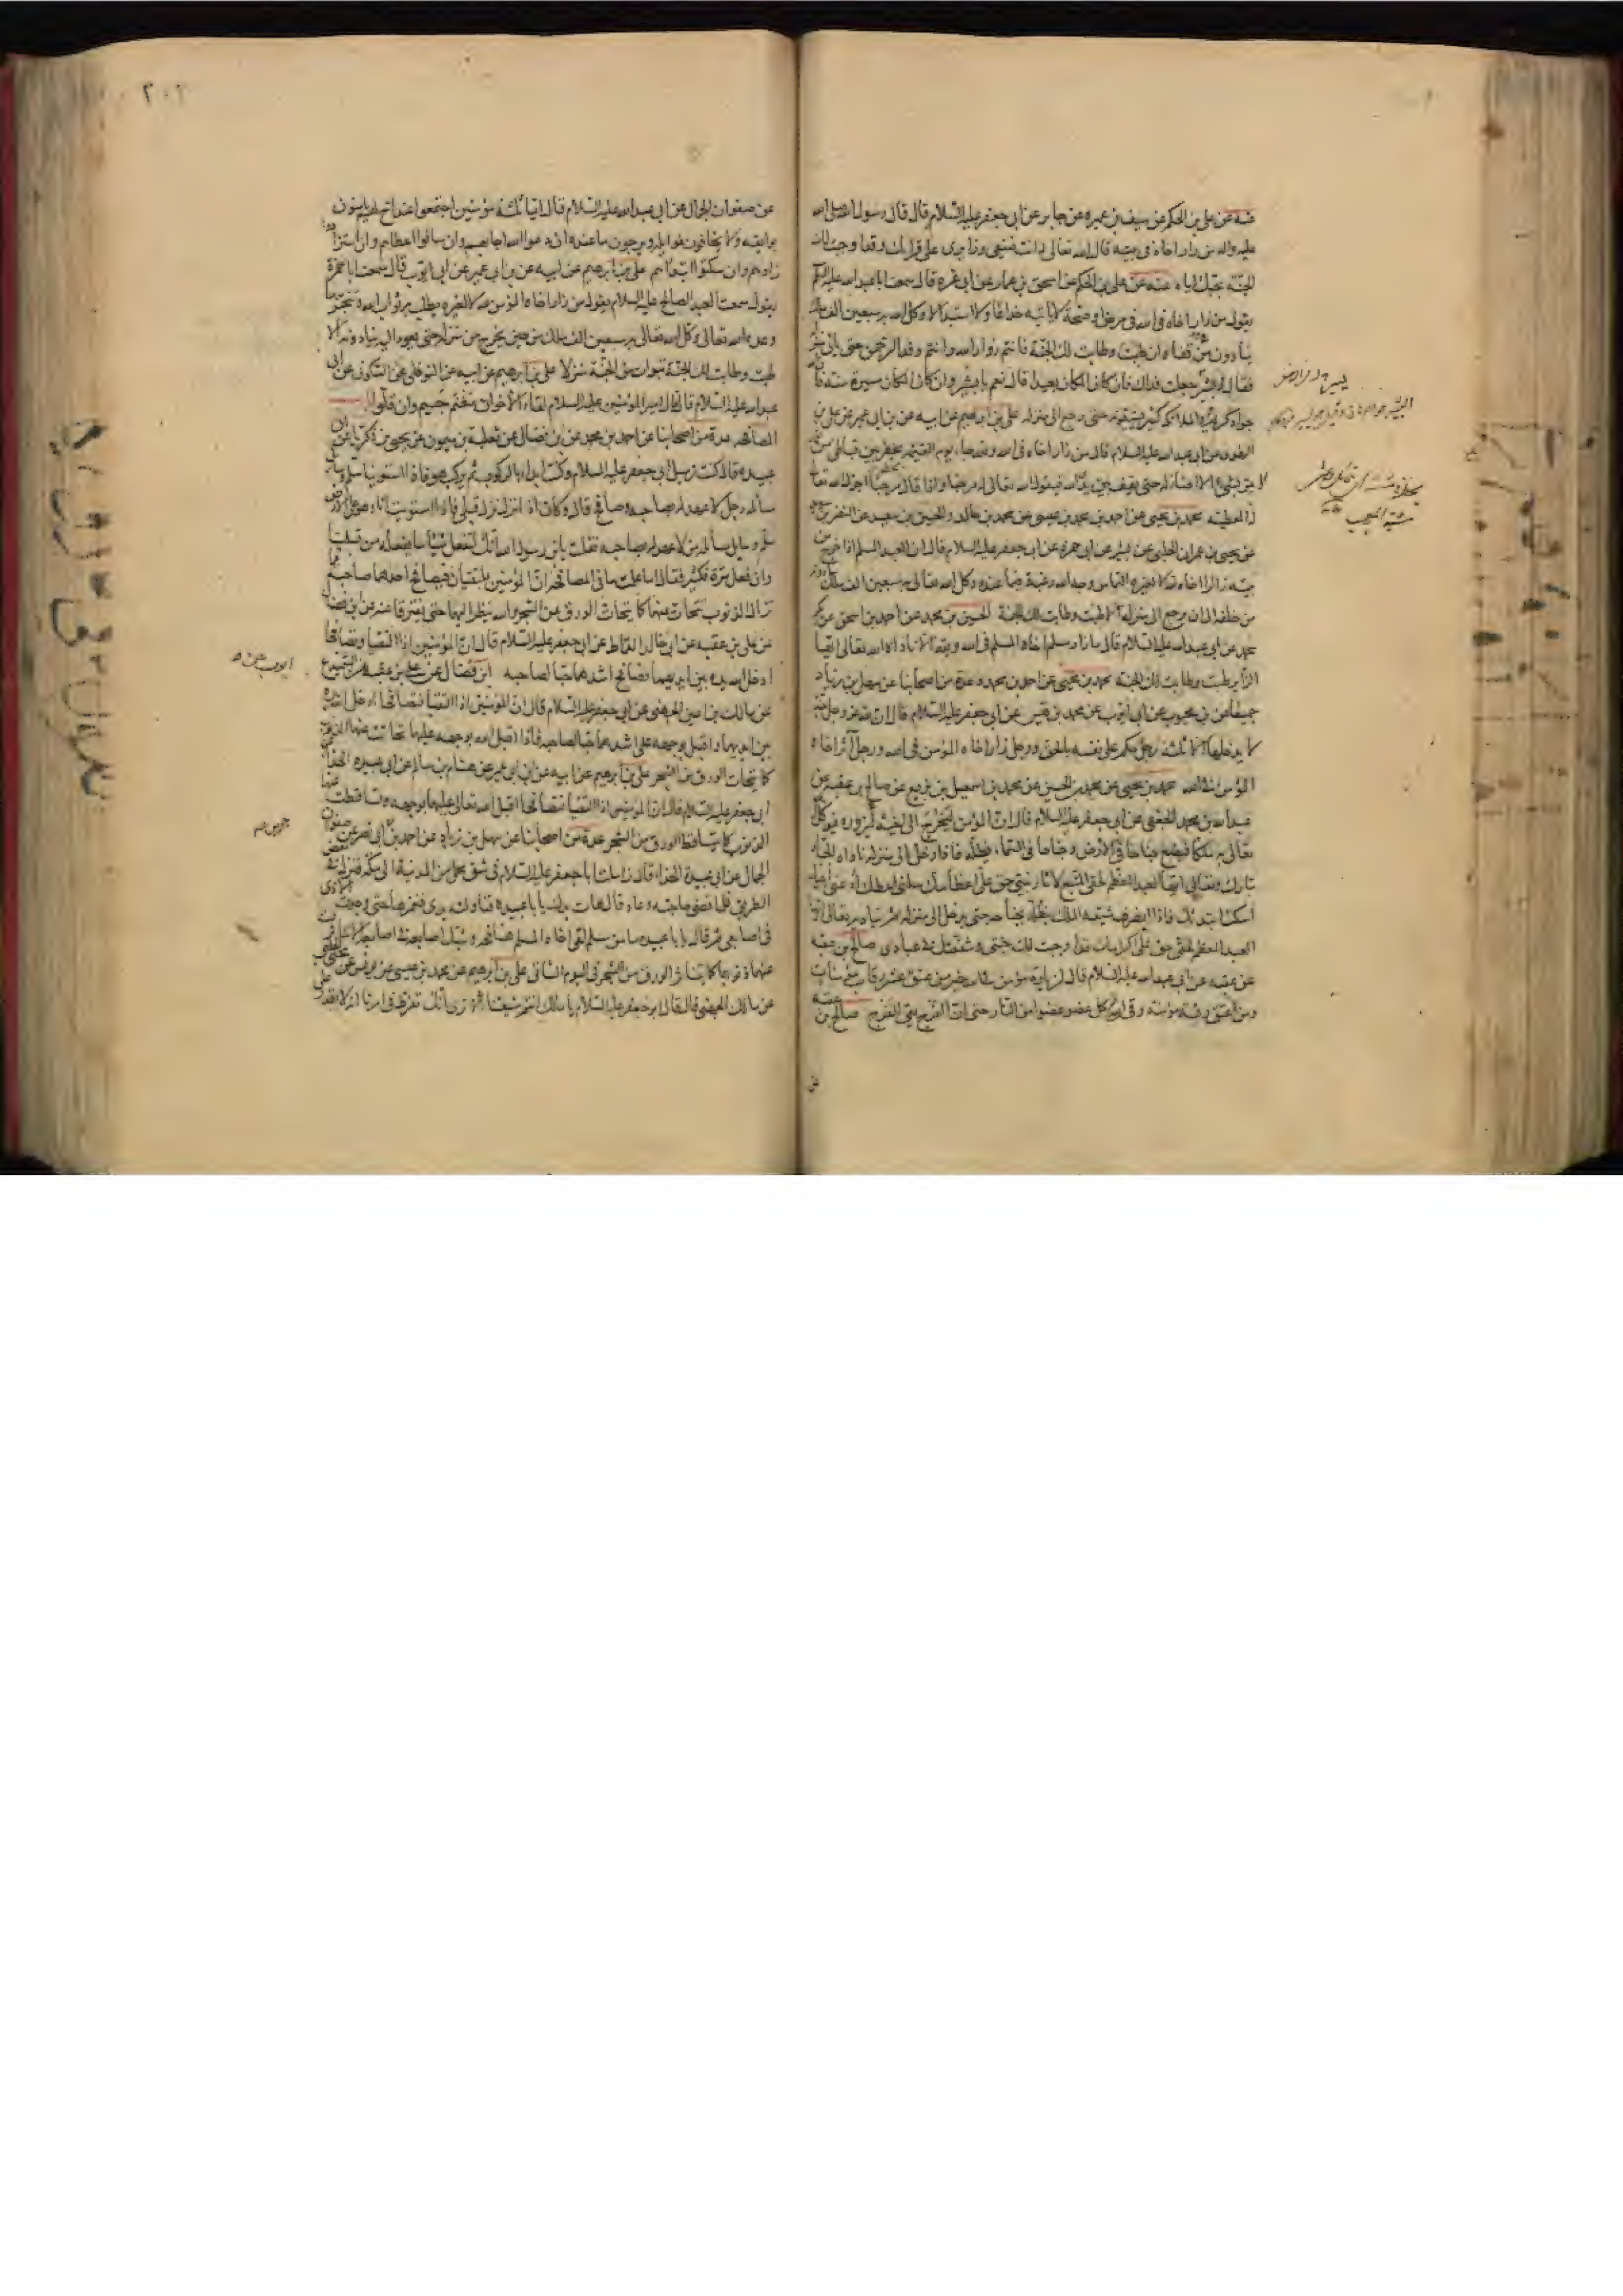 عنه عن علي بن الحكم عن سيف بن عميره عن جابر عن ابي جعفر عليه السلام قال قال رسول الله صلى الله
عليه واله من زار اخاه في بيته قال الله تعالى له انت ضيفي وزائري علي قراك وقد اوجبت لك
الجنة بحبك اياه عنه عن علي بن الحكم عن اسحق بن عمار عن ابي غره قال سمعت ابا عبد الله عليه السلم
يقول من زار اخاه في الله في مرض او صحة لا ياتيه خداعا ولا استبدالا وكل الله به سبعين الف ملك
ينادون من قفاه ان طبت وطابت لك الجنة فانتم زوار الله وانتم وفد الرحمن حتى ياتي منزله
فقال له يسير جعلت فداك فان كان المكان بعيدا قال نعم يا يسير وان كان المكان مسيرة سنة فان الله
جواد كريم والملائكة كثير يشيعونه حتى يرجع الى منزله علي بن ابراهيم عن ابيه عن ابن ابي عمير عن علي بن
عن ابي عبد الله عليه السلام قال من زار اخاه في الله ولله جاء يوم القيمة يخطر بين قباطي من نور
لا يمر بشيء الا اضاء له حتى يقف بين يدي الله فيقول الله تعالى له مرحبا واذا قال مرحبا اجزل الله تعالى
له العطية محمد بن يحيى عن احمد بن محمد بن عيسى عن محمد بن خالد والحسين بن سعيد عن النضر بن
عن يحيى بن عمران الحلبي عن بشير عن ابي حمزة عن ابي جعفر عليه السلام قال ان العبد المسلم اذا خرج من
بيته زائرا اخاه لله لا لغيره التماس وجه الله رغبة فيما عنده وكل الله تعالى به سبعين الف ملك
من خلفه الى ان يرجع الى منزله الا طبت وطابت لك الجنة الحسين بن محمد عن احمد بن اسحق عن بكر
محمد عن ابي عبد الله عليه السلام قال ما زار مسلم اخاه المسلم في الله ولله الا ناداه الله تعالى ايها
الزاير طبت وطابت لك الجنة محمد بن يحيى عن احمد بن محمد وعدة من اصحابنا عن سهل بن زياد
جميعا عن ابن محبوب عن ابي ايوب عن محمد بن قيس عن ابي جعفر عليه السلام قال ان لله عز وجل جنة
لا يدخلها الا ثلثة رجل حكم على نفسه بالحق ورجل زار اخاه المؤمن في الله ورجل آثر اخاه
المؤمن في الله محمد بن يحيى عن محمد بن الحسين عن محمد بن اسمعيل بن بزيع عن صالح بن عقبة عن
عبد الله بن محمد الجعفي عن ابي جعفر عليه السلام قال ان المؤمن ليخرج الى اخيه يزوره فيوكل
تعالى به ملكا فيضع جناحا في الارض وجناحا في السماء يظله فاذا دخل الى منزله ناداه الجبار
تبارك وتعالى ايها العبد المعظم لحقي المتبع لاثار نبيي حق علي اعظامك سلني اعطك ادعني اجبك
اسكت ابتدئك فاذا انصرف شيعه الملك يظله بجناحه حتى يدخل الى منزله ثم يناديه تعالى ايها
العبد المعظم لحقي حق علي اكرامك قد اوجبت لك جنتي وشفعتك في عبادي صالح بن عقبة
عن عقبه عن ابي عبد الله عليه السلام قال لزيارة مؤمن في الله خير من عتق عشر رقاب مؤمنات
ومن اعتق رقبة مؤمنة وقى كل عضو عضوا من النار حتى ان الفرج يقي الفرج صالح بن عقبه
٢٠٢
عن صفوان الجمال عن ابي عبد الله عليه السلام قال ايما ثلثة مؤمنين اجتمعوا عند اخ لهم يامنون
بوايقه ولا يخافون غوايله ويرجون ما عنده ان دعوا الله اجابهم وان سالوا اعطاهم وان استزادوا
زادهم وان سكتوا ابتداهم علي بن ابراهيم عن ابيه عن ابن ابي عمير عن ابي ايوب قال سمعت ابا حمزة
يقول سمعت العبد الصالح عليه السلام يقول من زار اخاه المؤمن لله لا لغيره يطلب به ثواب الله وتنجز ما
وعده الله تعالى وكل الله تعالى به سبعين الف ملك من حين يخرج من منزله حتى يعود اليه ينادونه الا
طبت وطابت لك الجنة تبوات من الجنة منزلا علي بن ابراهيم عن ابيه عن النوفلي عن السكوني عن ابي
عبد الله عليه السلام قال قال امير المؤمنين عليه السلام لقاء الاخوان مغنم جسيم وان قلوا
المصافحه عدة من اصحابنا عن احمد بن محمد عن ابن فضال عن ثعلبة بن ميمون عن يحيى بن زكريا عن ابي
عبيده قال كنت زميل ابي جعفر عليه السلام وكنت ابدا بالركوب ثم يركب هو فاذا استوينا سلم وسائل
سألة رجل لا عهد له بصاحبه وصافح قال وكان اذا نزل نزل قبلي فاذا استويت انا وهو على الارض
سلم وسايل سألة من لا عهد له بصاحبه فقلت يابن رسول الله انك لتفعل شيئا ما يفعله من قبلنا
وان فعل مرة فكثير فقال اما علمت ما في المصافحة ان المؤمنين يلتقيان فيصافح احدهما صاحبه فما
تزال الذنوب تتحات عنهما كما يتحات الورق عن الشجر والله ينظر اليهما حتى يفترقا عنه عن ابن فضال
عن علي بن عقبه عن ابي خالد القماط عن ابي جعفر عليه السلام قال ان المؤمنين اذا التقيا وتصافحا
ادخل الله يده بين ايديهما فصافح اشدهما حبا لصاحبه ابن فضال عن علي بن عقبه عن
عن مالك بن اعين الجهني عن ابي جعفر عليه السلام قال ان المؤمنين اذا التقيا فتصافحا ادخل الله يده
بين ايديهما واقبل بوجهه على اشدهما حبا لصاحبه فاذا اقبل الله بوجهه عليهما تحاتت عنهما الذنوب
كما يتحات الورق من الشجر علي بن ابراهيم عن ابيه عن ابن ابي عمير عن هشام بن سالم عن ابي عبيده الحذاء
ابي جعفر عليه السلام قال ان المؤمنين اذا التقيا فتصافحا اقبل الله تعالى عليهما بوجهه وتساقطت عنهما
الذنوب كما يتساقط الورق من الشجر عدة من اصحابنا عن سهل بن زياد عن احمد بن ابي نصر عن صفوان
الجمال عن ابي عبيدة الحذاء قال زاملت ابا جعفر عليه السلام في شق محمل من المدينة الى مكة فنزل في بعض
الطريق فلما قضى حاجته وعاد قال هات يدك يابا عبيده فناولته يدي فغمزها حتى وجدت الاذى
في اصابعي ثم قال يابا عبيده ما من مسلم لقي اخاه المسلم فصافحه وشبك اصابعه في اصابعه الا تناثرت
عنهما ذنوبهما كما يتناثر الورق من الشجر في اليوم الشاتي علي بن ابراهيم عن محمد بن عيسى عن يونس عن يحيى الحلبي
عن مالك الجهني قال قال ابو جعفر عليه السلام يا مالك انتم شيعتنا الا ترى انك تفرط في امرنا انه لا يقدر على